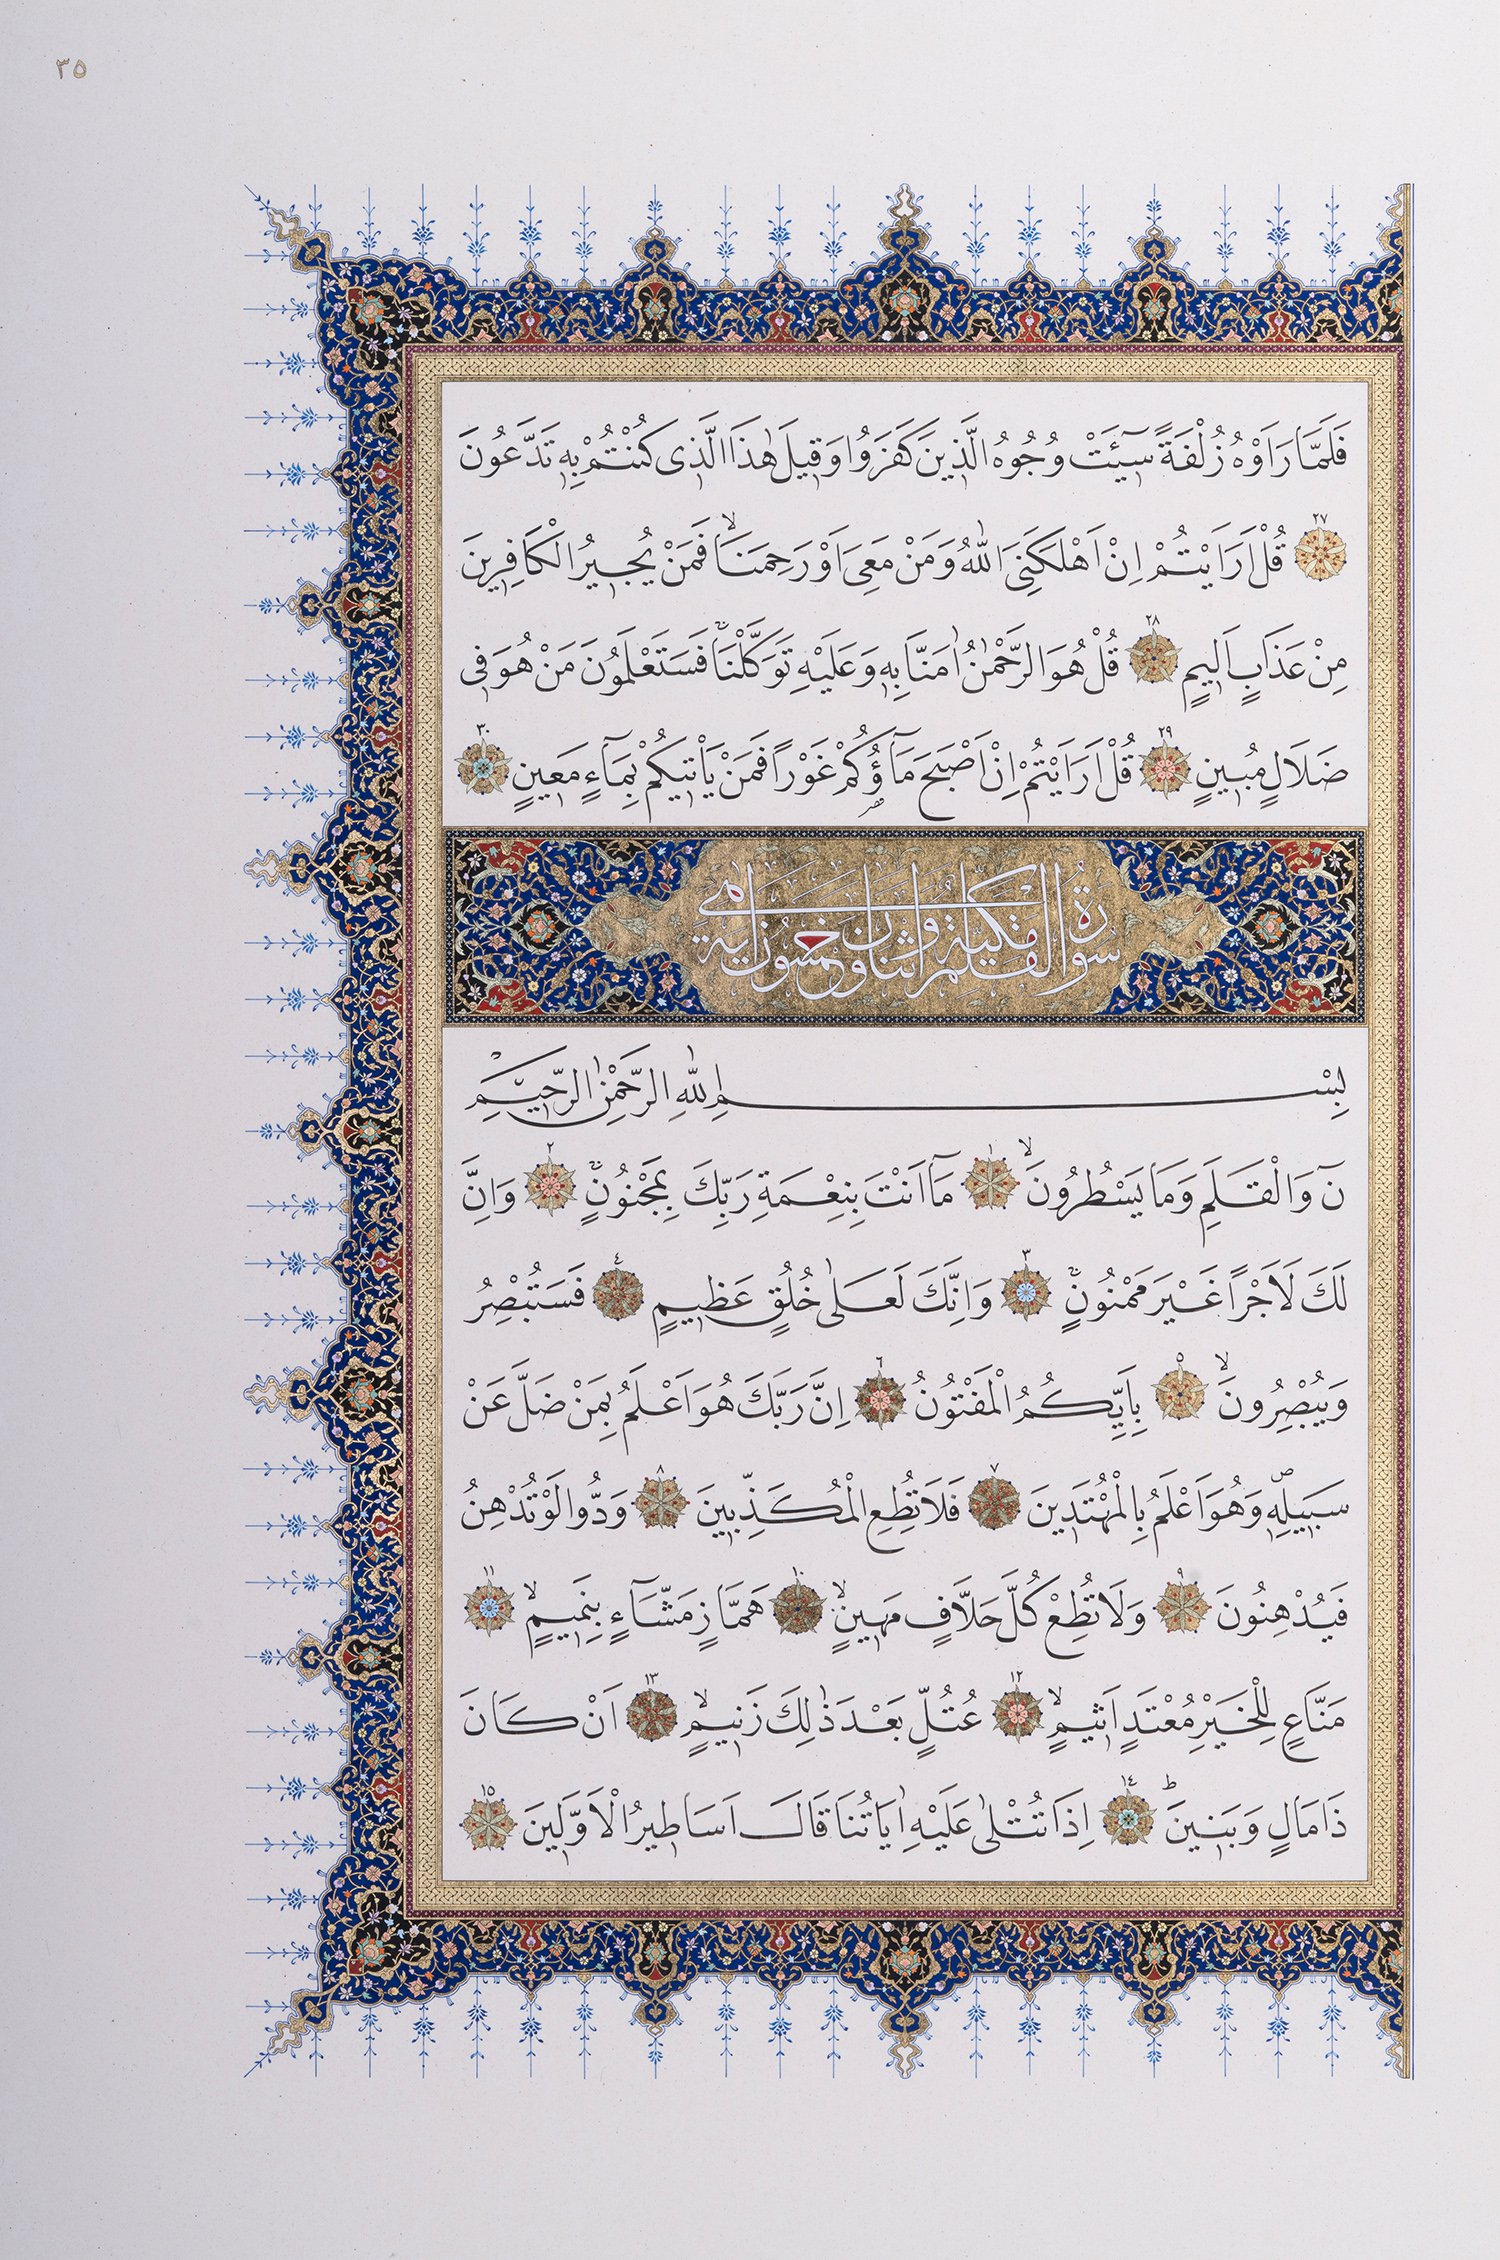 ٣٥
فَلَمَّا رَاَوْهُ زُلْفَةً سٓيـَٔتْ وُجُوهُ الَّذٖينَ كَفَرُوا وَقٖيلَ هٰذَا الَّذٖى كُنْتُمْ بِهٖ تَدَّعُونَ
٢٧ قُلْ اَرَاَيْتُمْ اِنْ اَهْلَكَنِىَ اللّٰهُ وَمَنْ مَعِىَ اَوْ رَحِمَنَاۙ فَمَنْ يُجٖيرُ الْكَافِرٖينَ
مِنْ عَذَابٍ اَلٖيمٍ ٢٨ قُلْ هُوَ الرَّحْمٰنُ اٰمَنَّا بِهٖ وَعَلَيْهِ تَوَكَّلْنَاۚ فَسَتَعْلَمُونَ مَنْ هُوَ فٖى
ضَلَالٍ مُبٖينٍ ٢٩ قُلْ اَرَاَيْتُمْ اِنْ اَصْبَحَ مَٓاؤُ۬كُمْ غَوْرًا فَمَنْ يَاْتٖيكُمْ بِمَٓاءٍ مَعٖينٍ ٣٠
سورة القلم مكية وهى اثنتان وخمسون اية
بِسْمِ اللّٰهِ الرَّحْمٰنِ الرَّحٖيمِ
نٓ وَالْقَلَمِ وَمَا يَسْطُرُونَۙ ١ مَٓا اَنْتَ بِنِعْمَةِ رَبِّكَ بِمَجْنُونٍۚ ٢ وَاِنَّ
لَكَ لَاَجْرًا غَيْرَ مَمْنُونٍۚ ٣ وَاِنَّكَ لَعَلٰى خُلُقٍ عَظٖيمٍ ٤ فَسَتُبْصِرُ
وَيُبْصِرُونَۙ ٥ بِاَيِّكُمُ الْمَفْتُونُ ٦ اِنَّ رَبَّكَ هُوَ اَعْلَمُ بِمَنْ ضَلَّ عَنْ
سَبٖيلِهٖۖ وَهُوَ اَعْلَمُ بِالْمُهْتَدٖينَ ٧ فَلَا تُطِعِ الْمُكَذِّبٖينَ ٨ وَدُّوا لَوْ تُدْهِنُ
فَيُدْهِنُونَ ٩ وَلَا تُطِعْ كُلَّ حَلَّافٍ مَهٖينٍۙ ١٠ هَمَّازٍ مَشَّٓاءٍ بِنَمٖيمٍۙ ١١
مَنَّاعٍ لِلْخَيْرِ مُعْتَدٍ اَثٖيمٍۙ ١٢ عُتُلٍّ بَعْدَ ذٰلِكَ زَنٖيمٍۙ ١٣ اَنْ كَانَ
ذَا مَالٍ وَبَنٖينَؕ ١٤ اِذَا تُتْلٰى عَلَيْهِ اٰيَاتُنَا قَالَ اَسَاطٖيرُ الْاَوَّلٖينَ ١٥